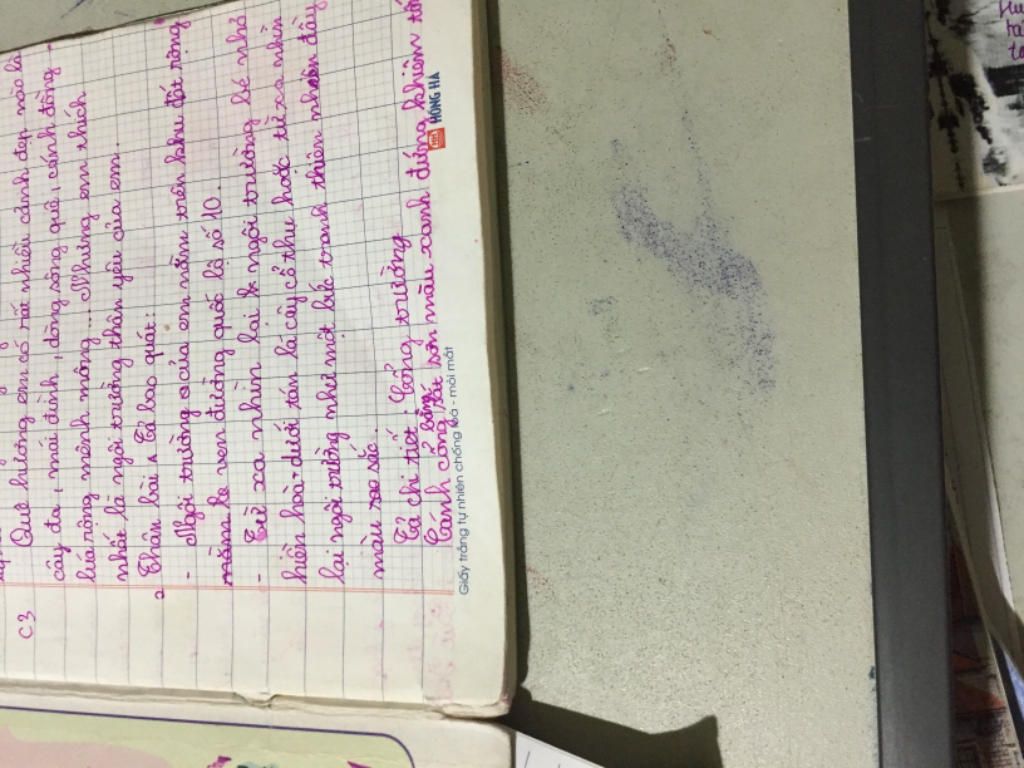 C3
Quê hương em có rất nhiều cảnh đẹp nào là
cây đa, mái đình, dòng sông quê, cánh đồng
lúa rộng mênh mông... Nhưng em thích
nhất là ngôi trường thân yêu của em.
2 Thân bài Tả bao quát:
- Ngôi trường của em nằm trên khu đất rộng
ven đường quốc lộ số 10.
- Từ xa nhìn lại ngôi trường bé nhỏ
hiền hoà dưới tán lá cây cổ thụ hoặc từ xa nhìn
lại ngôi trường như một bức tranh thiên nhiên đầy
màu sắc.
Tả chi tiết: Cổng trường
Cánh cổng bằng sắt sơn màu xanh đứng khiêm tốn
Giấy trắng tự nhiên chống loá - mỏi mắt
HỒNG HÀ
Hu